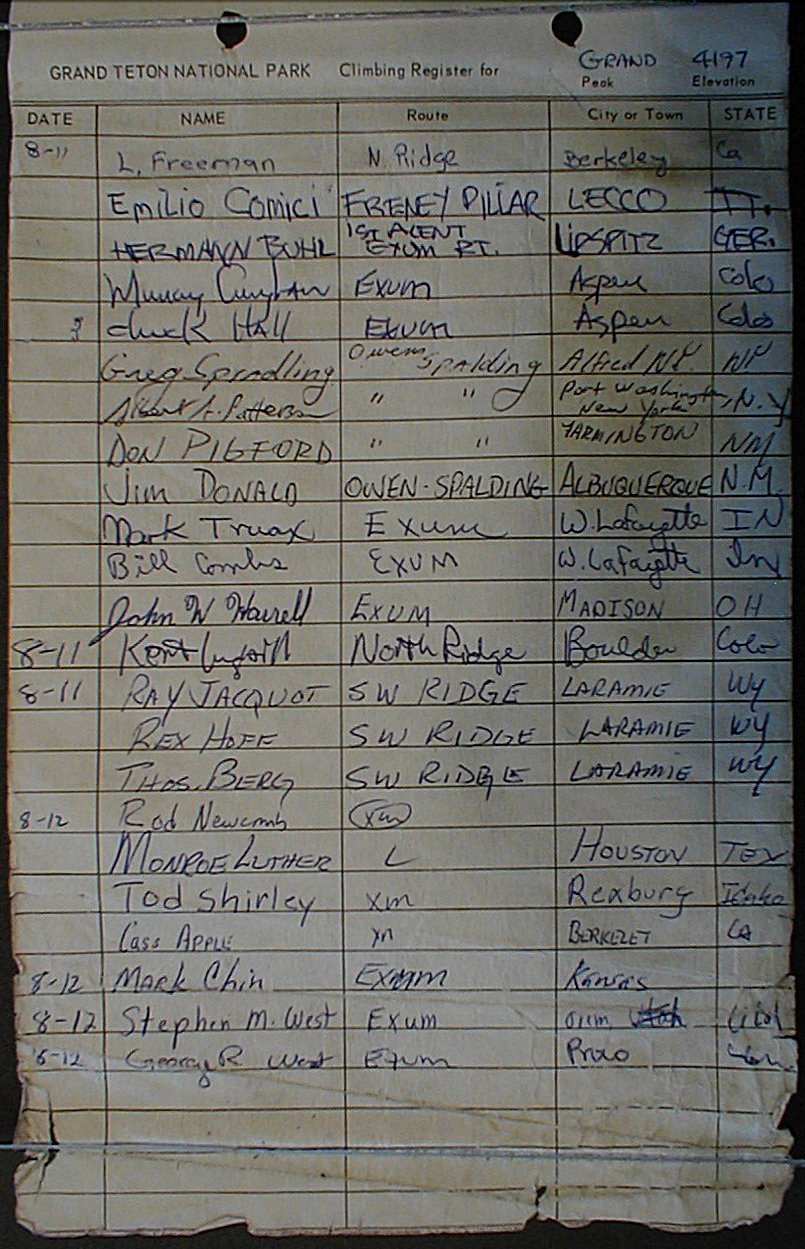 GRAND TETON NATIONAL PARK Climbing Register for GRAND 4197
Peak Elevation
DATE NAME Route City or Town STATE
8-11 L. Freeman N Ridge Berkeley Ca
Emilio Comici FRENEY PILLAR LECCO IT.
HERMANN BUHL 1ST ACENT EXUM RT. LIPSPITZ GER.
Murray Exum Aspen Colo
Chuck Hall Exum Aspen Colo
Greg Spradling Owen Spalding Alfred N.Y. NY
Albert A. Patterson " " Port Washington, New York N.Y
DON PIGFORD " " FARMINGTON NM
Jim DONALD OWEN-SPALDING ALBUQUERQUE N.M.
Mark Truax Exum W. Lafayette IN
Bill Combs EXUM W. Lafayette In
John W Harrell EXUM MADISON OH
8-11 Kent North Ridge Boulder Colo
8-11 RAY JACQUOT SW RIDGE LARAMIE Wy
REX HOFF SW RIDGE LARAMIE WY
THOS. BERG SW RIDGE LARAMIE WY
8-12 Rod Newcomb Xm
MONROE LUTHER L HOUSTON TEX
Tod Shirley xm Rexburg Idaho
Cass APPLE xm BERKELEY CA
8-12 Mark Chin Exum Kansas
8-12 Stephen M. West Exum Orem Utah Utah
8-12 George R West Exum Provo